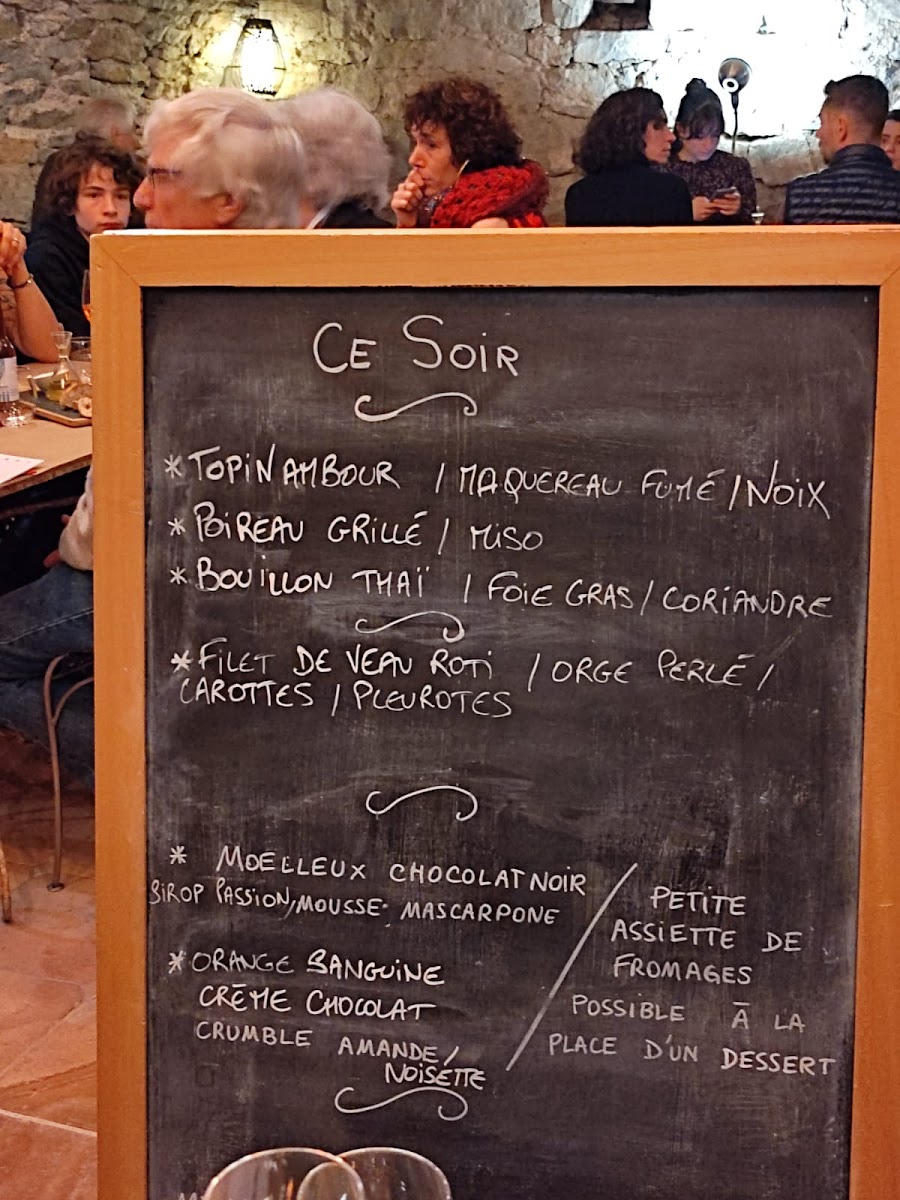 CE SOIR
* TOPINAMBOUR / MAQUEREAU FUMÉ / NOIX
* POIREAU GRILLÉ / MISO
* BOUILLON THAÏ / FOIE GRAS / CORIANDRE
* FILET DE VEAU ROTI / ORGE PERLÉ /
CAROTTES / PLEUROTES
* MOELLEUX CHOCOLAT NOIR
SIROP PASSION, MOUSSE MASCARPONE
* ORANGE SANGUINE
CRÈME CHOCOLAT
CRUMBLE AMANDE /
NOISETTE
PETITE
ASSIETTE DE
FROMAGES
POSSIBLE À LA
PLACE D'UN DESSERT